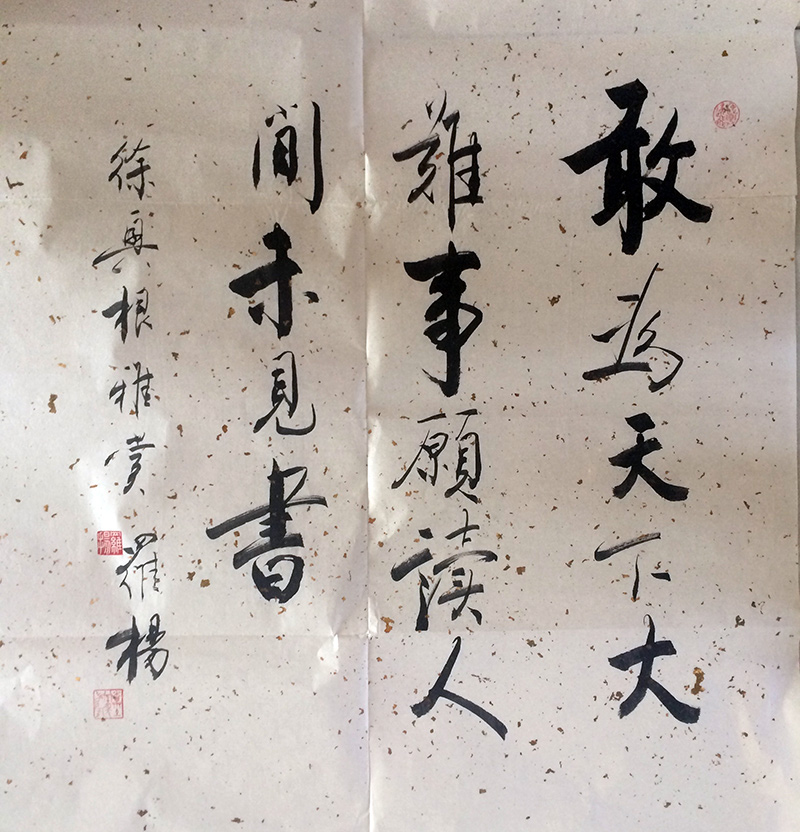 敢為天下大
難事願讀人
間未見書
徐真根雅賞 羅楊
羅楊